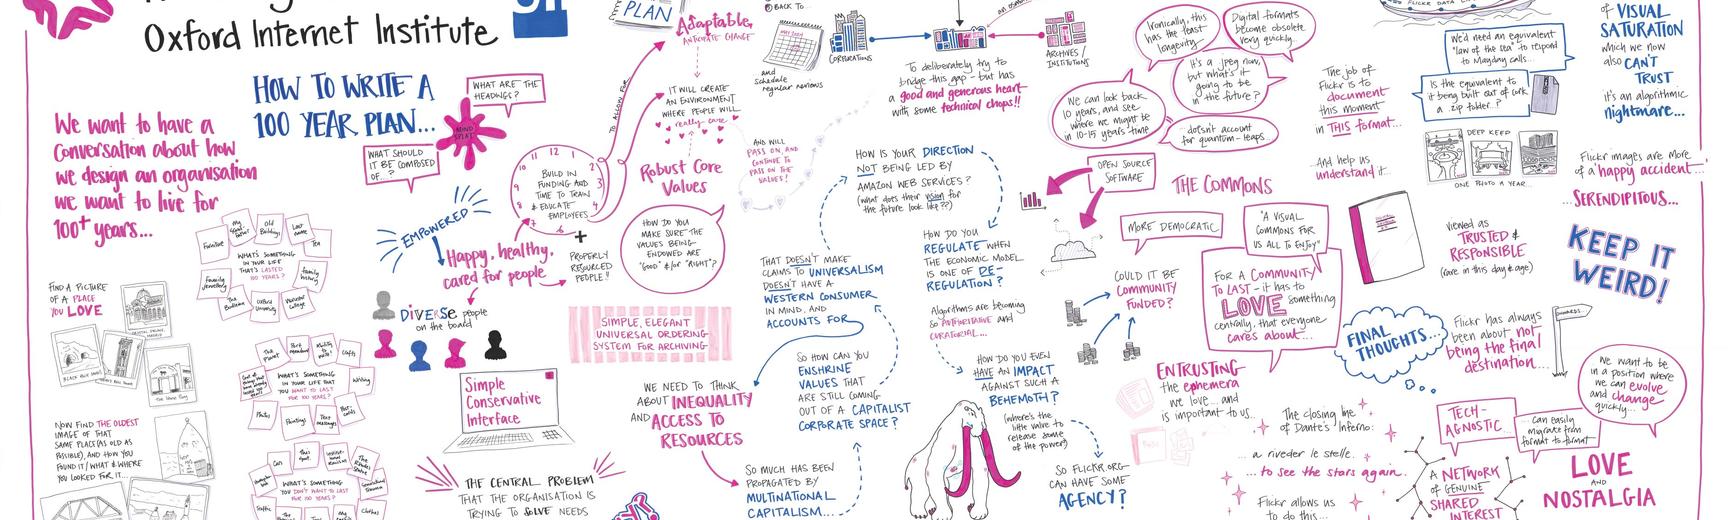 Oxford Internet Institute
HOW TO WRITE A
100 YEAR PLAN...
WHAT ARE THE
HEADINGS?
MIND
SPLAT
WHAT SHOULD
IT BE COMPOSED
OF...?
We want to have a
conversation about how
we design an organisation
we want to live for
100+ years...
FIND A PICTURE
OF A PLACE
YOU LOVE
NOW FIND THE OLDEST
IMAGE OF THAT
SAME PLACE (AS OLD AS
POSSIBLE), AND HOW YOU
FOUND IT / WHAT & WHERE
YOU LOOKED FOR IT...
Furniture
Old
Buildings
Last
name
Tea
Family
Jewellery
family
history
The
Bodleian
Oxford
University
College
WHAT'S SOMETHING
IN YOUR LIFE
THAT'S LASTED
100 YEARS?
The
Planet
Port
meadow
Crafts
Writing
Photos
Paintings
Text
messages
Post-
cards
WHAT'S SOMETHING
IN YOUR LIFE THAT
YOU WANT TO LAST
FOR 100 YEARS?
Cars
Traffic
Clothes
WHAT'S SOMETHING
YOU DON'T WANT TO LAST
FOR 100 YEARS?
EMPOWERED
Happy, healthy,
cared for people
DIVERSE people
on the board
Simple
Conservative
Interface
THE CENTRAL PROBLEM
THAT THE ORGANISATION IS
TRYING TO SOLVE NEEDS
PLAN
TO ALLOW FOR
11 12 1
10 2
9 3
8 4
7 6
BUILD IN
FUNDING AND
TIME TO TRAIN
& EDUCATE
EMPLOYEES
+
PROPERLY
RESOURCED
PEOPLE!!
Adaptable,
ANTICIPATE CHANGE
IT WILL CREATE
AN ENVIRONMENT
WHERE PEOPLE WILL
really care
Robust Core
Values
HOW DO YOU
MAKE SURE THE
VALUES BEING
ENDOWED ARE
"GOOD" &/or "RIGHT"?
SIMPLE, ELEGANT
UNIVERSAL ORDERING
SYSTEM FOR ARCHIVING
WE NEED TO THINK
ABOUT INEQUALITY
AND ACCESS TO
RESOURCES
BACK TO...
and
schedule
regular revivals
AND WILL
PASS ON, AND
CONTINUE TO
PASS ON THE
VALUES!
CORPORATIONS
ARCHIVES/
INSTITUTIONS
To deliberately try to
bridge this gap - but has
a good and generous heart
with some technical chops!!
HOW IS YOUR DIRECTION
NOT BEING LED BY
AMAZON WEB SERVICES?
(what does their vision for
the future look like??)
THAT DOESN'T MAKE
CLAIMS TO UNIVERSALISM
DOESN'T HAVE A
WESTERN CONSUMER
IN MIND, AND
ACCOUNTS FOR
SO HOW CAN YOU
ENSHRINE
VALUES THAT
ARE STILL COMING
OUT OF A CAPITALIST
CORPORATE SPACE?
SO MUCH HAS BEEN
PROPAGATED BY
MULTINATIONAL
CAPITALISM...
HOW DO YOU
REGULATE WHEN
THE ECONOMIC MODEL
IS ONE OF DE-
REGULATION?
Algorithms are becoming
so AUTHORITATIVE and
CURATORIAL...
HOW DO YOU EVEN
HAVE AN IMPACT
AGAINST SUCH A
BEHEMOTH?
(where's the
little valve to
release some
of the power)
SO FLICKR.ORG
CAN HAVE SOME
AGENCY?
Ironically, this
has the least
longevity...
Digital formats
become obsolete
very quickly...
It's a jpeg now,
but what's it
going to be
in the future?
We can look back
10 years, and see
where we might be
in 10-15 years time
doesn't account
for quantum-leaps...
OPEN SOURCE
SOFTWARE
THE COMMONS
MORE DEMOCRATIC
"A VISUAL
COMMONS FOR
US ALL TO ENJOY"
COULD IT BE
COMMUNITY
FUNDED?
FOR A COMMUNITY
TO LAST - it has to
LOVE something
centrally, that everyone
cares about...
ENTRUSTING
the ephemera
we love... and
is important to us...
The closing line
of Dante's Inferno:
... a riveder le stelle...
... to see the stars again...
Flickr allows us
to do this...
The job of
Flickr is to
document
this moment
in THIS format...
...And help us
understand it...
FLICKR DATA
We'd need an equivalent
"law of the sea" to respond
to Mayday calls...
Is the equivalent to
it being built out of cork,
a zip folder..?
DEEP KEEP
ONE PHOTO A YEAR...
viewed as
TRUSTED &
RESPONSIBLE
(rare in this day & age)
FINAL
THOUGHTS...
Flickr has always
been about not
being the final
destination...
of VISUAL
SATURATION
which we now
also CAN'T
TRUST
it's an algorithmic
nightmare...
Flickr images are more
of a 'happy accident'...
...SERENDIPITOUS...
KEEP IT
WEIRD!
We want to be
in a position where
we can evolve
and change
quickly...
TECH-
AGNOSTIC...
... can easily
migrate from
format to format
A NETWORK
of GENUINE
SHARED
INTEREST
LOVE
AND
NOSTALGIA